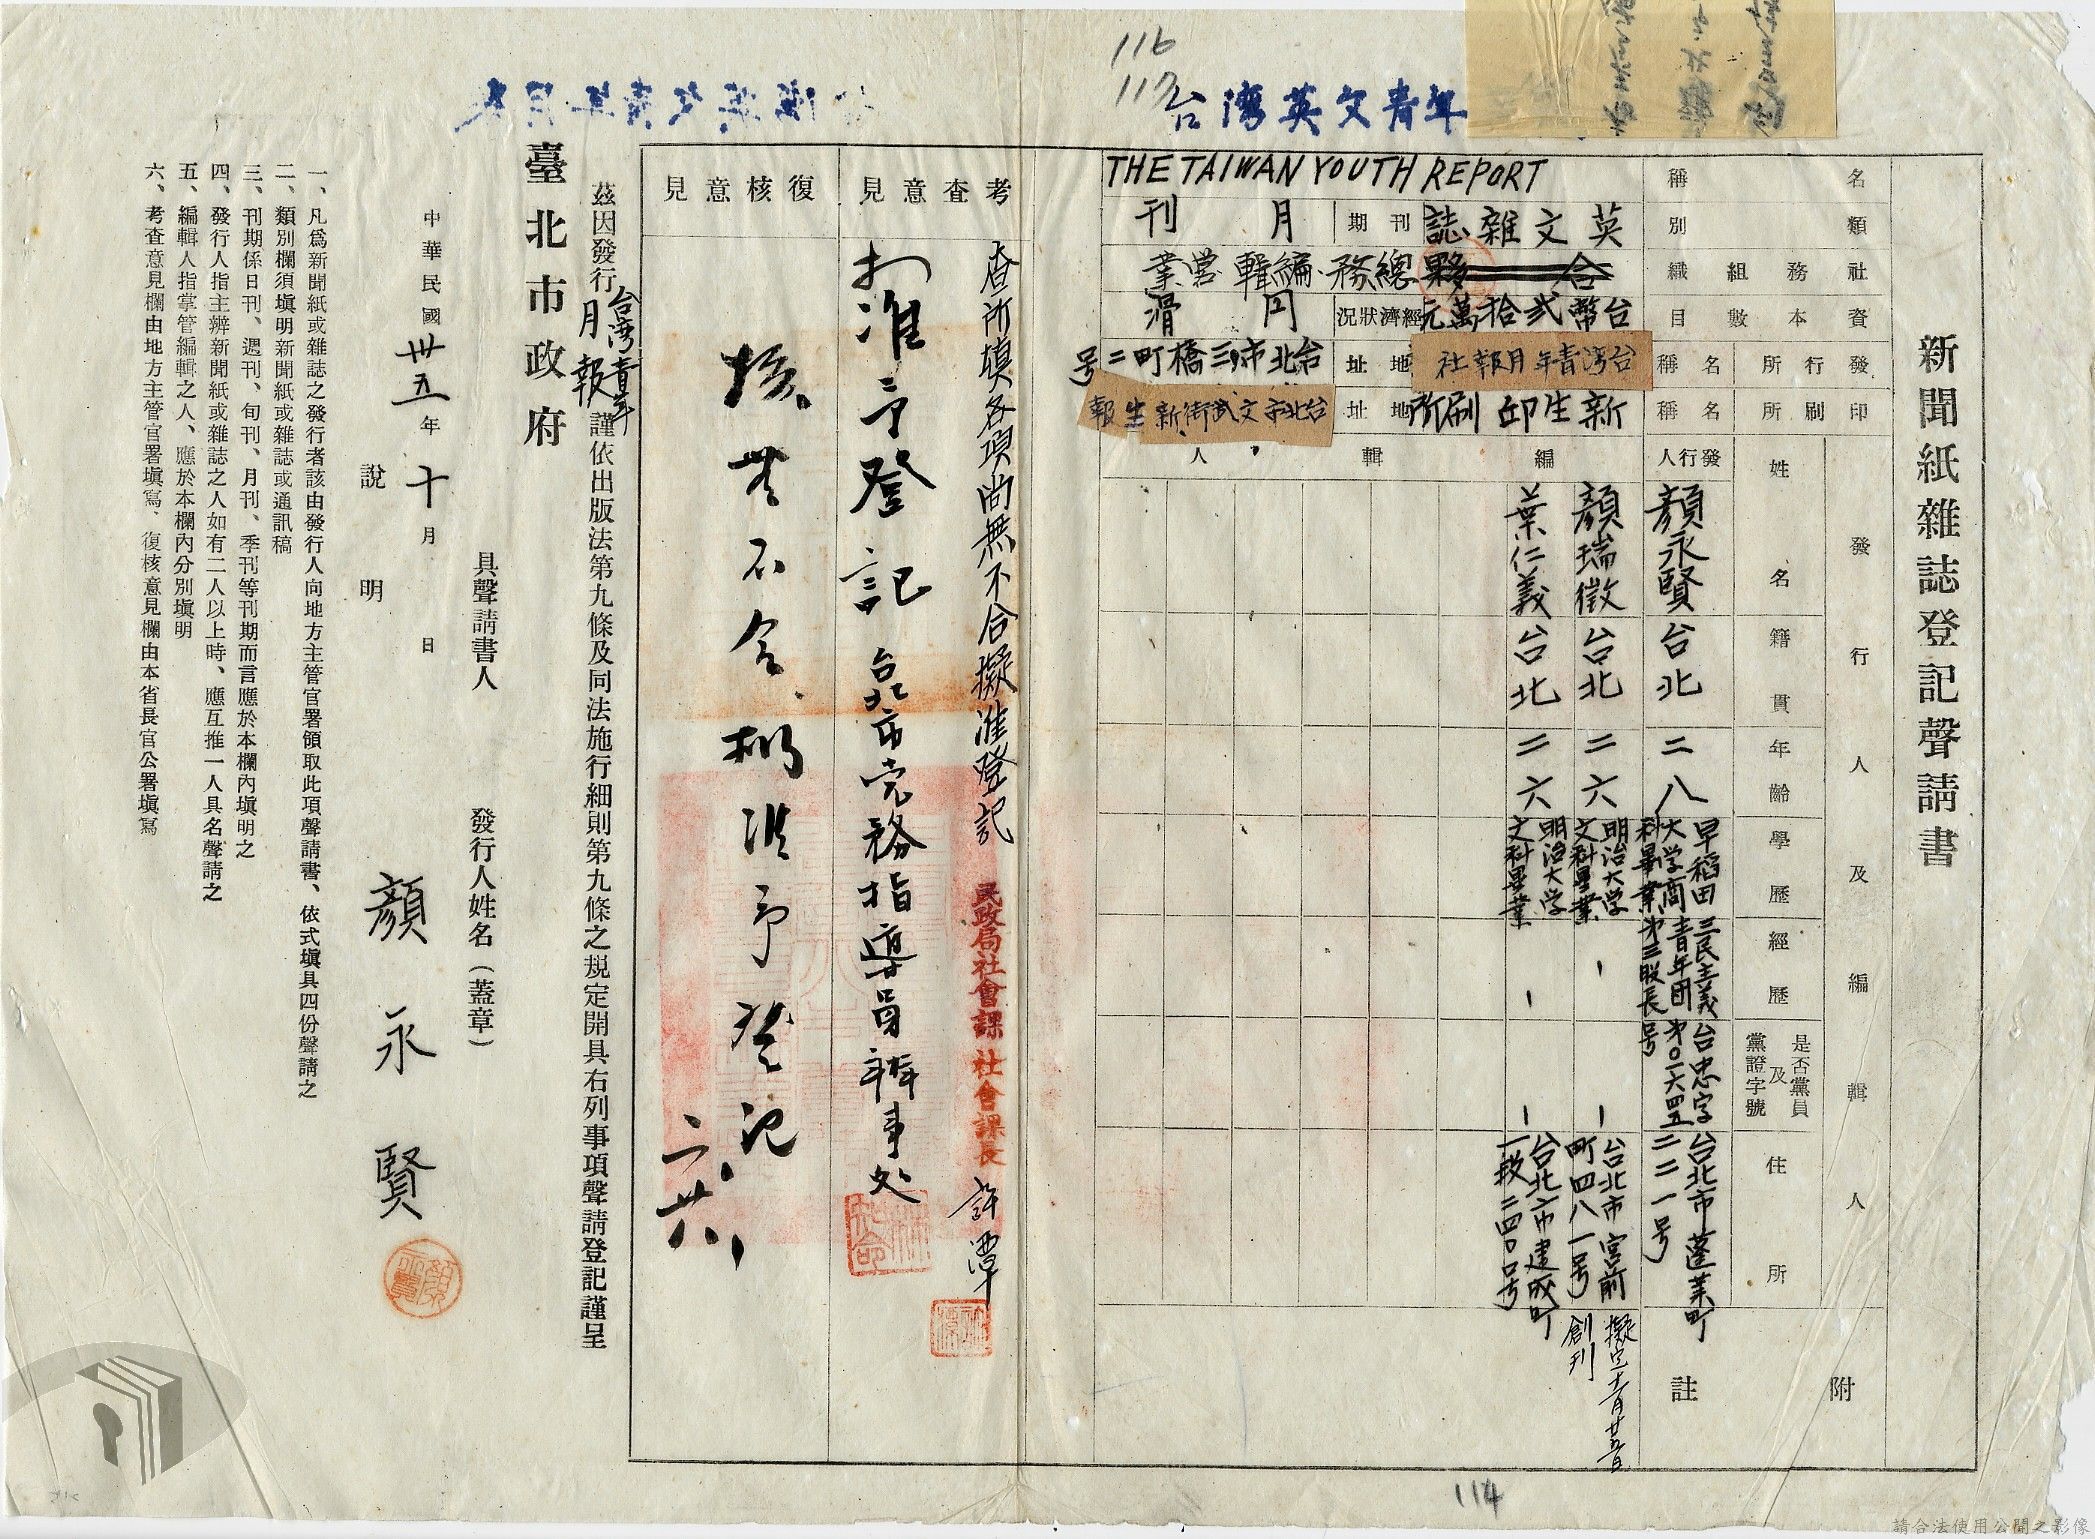 116
117
台湾英文青年
新聞紙雜誌登記聲請書
名稱
THE TAIWAN YOUTH REPORT
類別
英文雜誌
刊期
月刊
社務組織
合夥
總務 編輯 營業
資本數目
台幣貳拾萬元
經濟狀況
円滑
發行所名稱
台湾青年月報社
地址
台北市三橋町二号
印刷所名稱
新生印刷所
地址
台北市文武街新生報
發行人及編輯人
姓名
籍貫
年齡
學歷
經歷
是否黨員及黨證字號
住所
發行人
顏永賢
台北
二八
早稻田大学商科畢業
三民主義青年团第三股長
台忠字第〇一六四五号
台北市蓬莱町二二一号
編輯人
顏瑞徵
台北
二六
明治大学文科畢業
台北市宮前町四八一号
葉仁義
台北
二六
明治大学文科畢業
台北市建成町一段二四〇号
附註
擬定十一月廿五日創刊
考查意見
查所填各項尚無不合擬准登記
民政局社會課 社會課長 許潭
擬准予登記 臺北市党務指導員辦事处
復核意見
核尚不合擬准予登記
六廿八
茲因發行台湾青年月報謹依出版法第九條及同法施行細則第九條之規定開具右列事項聲請登記謹呈
臺北市政府
具聲請書人
發行人姓名(蓋章)
顏永賢
中華民國卅五年十月 日
說明
一、凡為新聞紙或雜誌之發行者該由發行人向地方主管官署領取此項聲請書、依式填具四份聲請之
二、類別欄須填明新聞紙或雜誌或通訊稿
三、刊期係日刊、週刊、旬刊、月刊、季刊等刊期而言應於本欄內填明之
四、發行人指主辦新聞紙或雜誌之人如有二人以上時、應互推一人具名聲請之
五、編輯人指掌管編輯之人、應於本欄內分別填明
六、考查意見欄由地方主管官署填寫、復核意見欄由本省長官公署填寫
114
請合法使用公開之影像